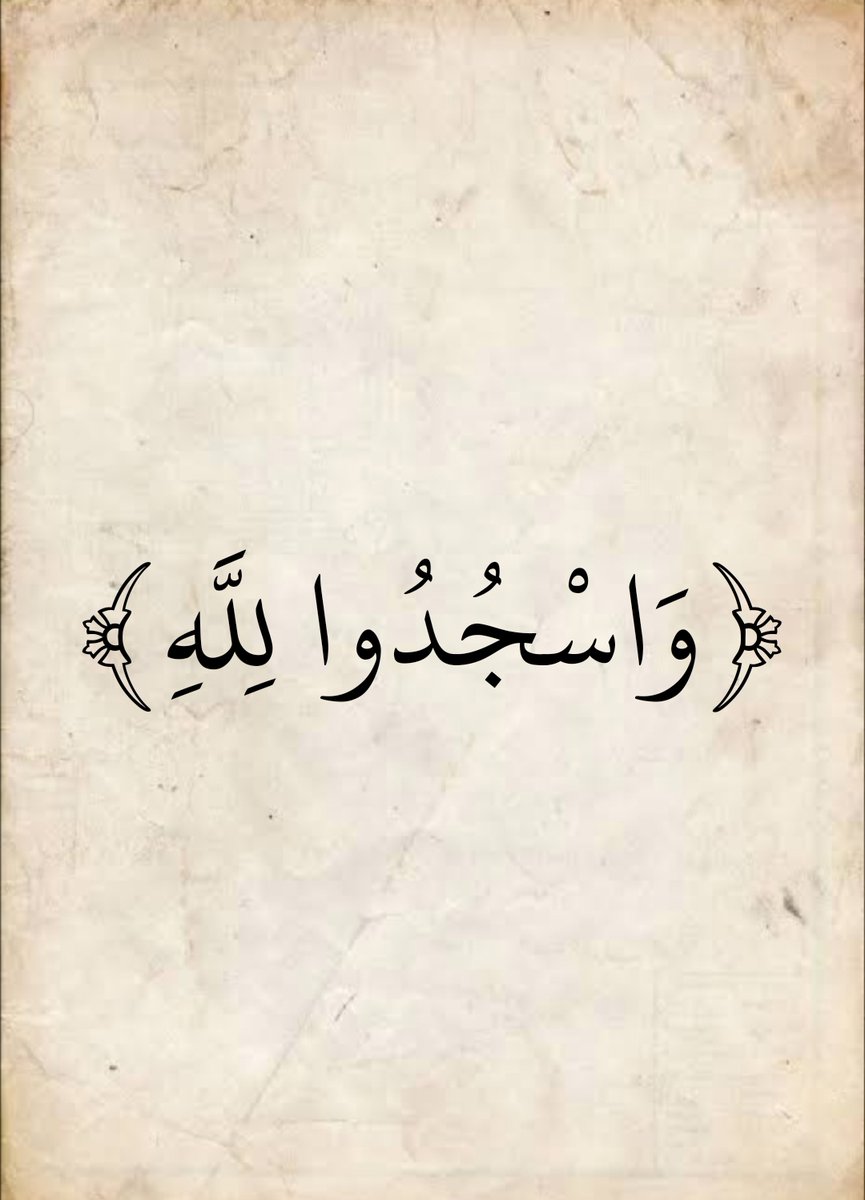 ﴿وَاسْجُدُوا لِلَّهِ﴾